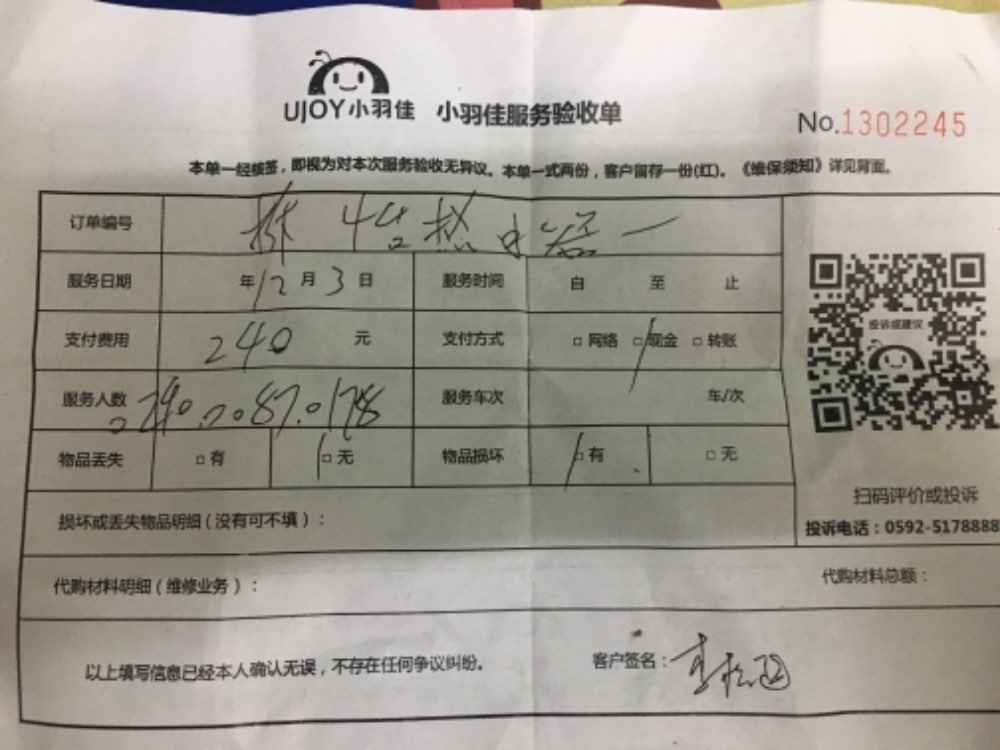 UJOY小羽佳 小羽佳服务验收单
No.1302245
本单一经核签，即视为对本次服务验收无异议。本单一式两份，客户留存一份(红)。《维保须知》详见背面。
订单编号 热水器一
服务日期 年12月3日 服务时间 自 至 止
支付费用 240 元 支付方式 □网络 □现金 □转账
服务人数 服务车次 车/次
物品丢失 □有 □无 物品损坏 □有 □无
投诉或建议
扫码评价或投诉
投诉电话：0592-5178888
损坏或丢失物品明细（没有可不填）：
代购材料明细（维修业务）： 代购材料总额：
以上填写信息已经本人确认无误，不存在任何争议纠纷。 客户签名：